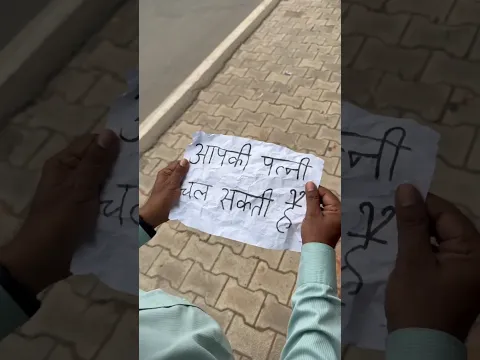 आपकी पत्नी
चल सकती
है